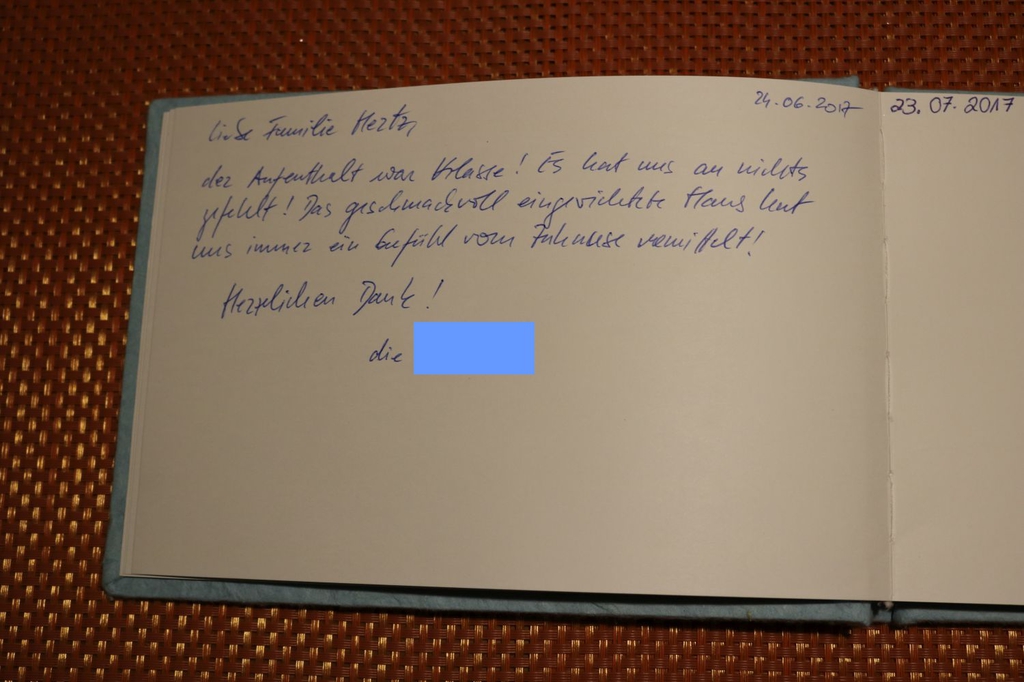 24.06.2017
Liebe Familie Hertz,
der Aufenthalt war Klasse! Es hat uns an nichts
gefehlt! Das geschmackvoll eingerichtete Haus hat
uns immer ein Gefühl vom Zuhause vermittelt!
Herzlichen Dank!
die
23.07.2017